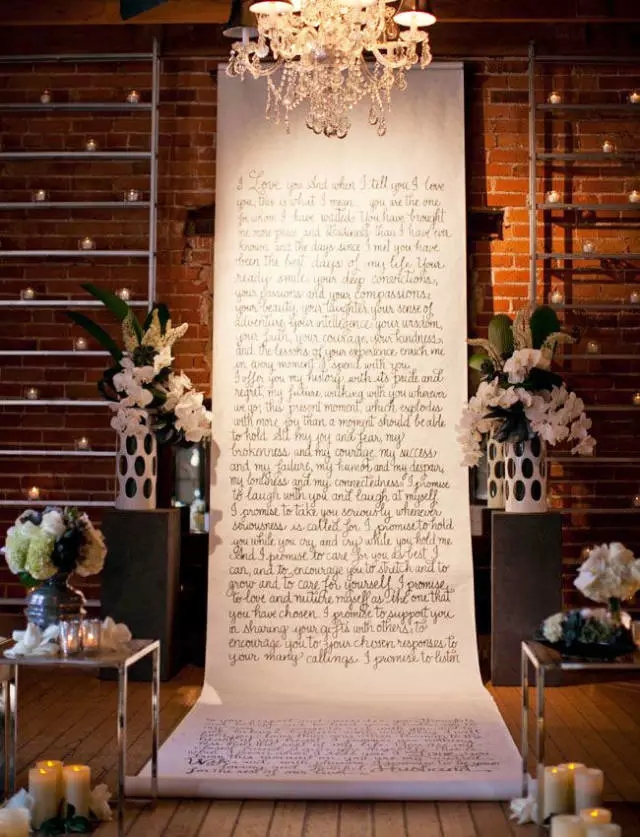 I Love you. And when I tell you I love
you, this is what I mean: you are the one
for whom I have waited. You have brought
me more peace and steadiness than I have ever
known, and the days since I met you have
been the best days of my life. Your
ready smile, your deep convictions,
your passions and your compassions;
your beauty, your laughter, your sense of
adventure, your intelligence, your wisdom,
your faith, your courage, your kindness,
and the lessons of your experience enrich me
in every moment I spend with you.
I offer you my history, with its pride and
regret, my future, walking with you wherever
we go; this present moment, which explodes
with more joy than a moment should be able
to hold. All my joy and fear, my
brokenness and my courage, my success
and my failure, my humor, and my despair,
my loneliness and my connectedness. I promise
to laugh with you and laugh at myself.
I promise to take you seriously wherever
seriousness is called for. I promise to hold
you while you cry, and cry while you hold me.
And I promise to care for you as best I
can, and to encourage you to stretch and to
grow and to care for yourself. I promise
to love and nurture myself as the one that
you have chosen. I promise to support you
in sharing your gifts with others; to
encourage you to your chosen responses to
your many callings. I promise to listen